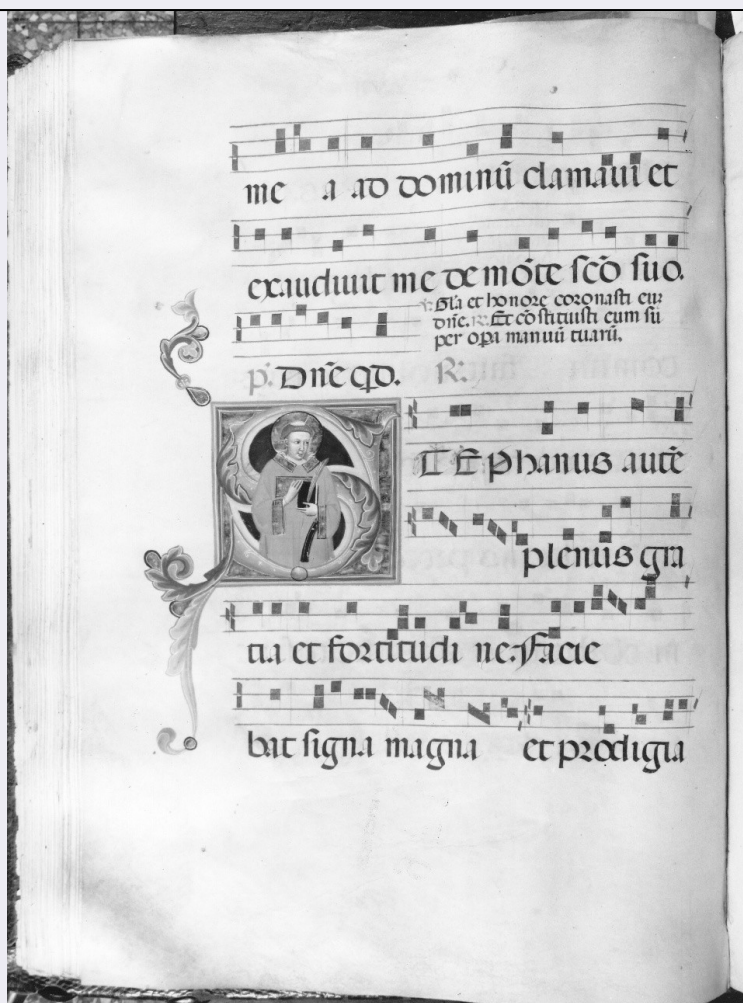 me a ad dominū clamaui et
exaudiuit me de mōte scō suo.
℣. Gl̄a et honore coronasti eū
dn̄e. ℞. Et cōstituisti eum sū
per oꝑa manuū tuarū.
p̄. Dn̄e qd. R.
STEPhanus autē
plenus gra
tia et fortitudi ne. Facie
bat signa magna et prodigia